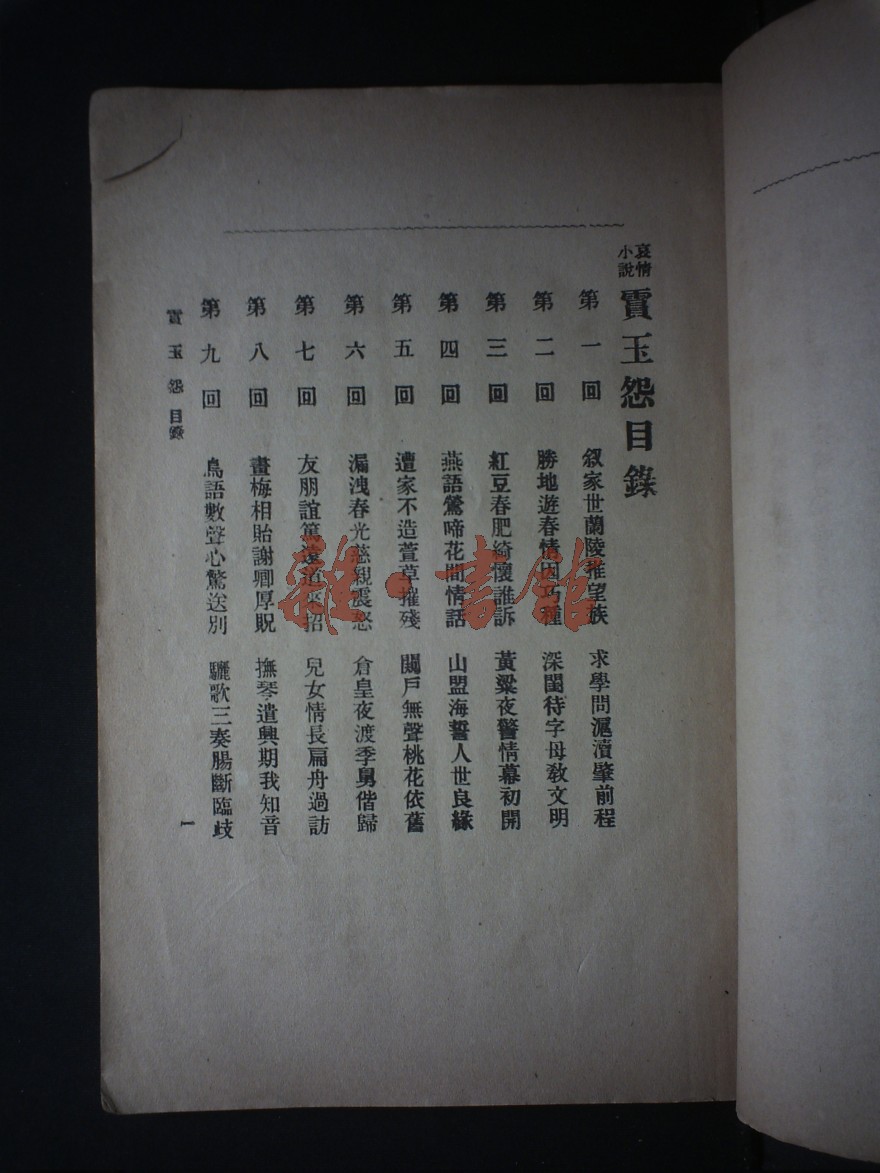 哀情小說
賣玉怨目錄
第一回 叙家世蘭陵推望族 求學問滬瀆肇前程
第二回 勝地遊春情因巧種 深閨待字母敎文明
第三回 紅豆春肥綺懷誰訴 黃粱夜警情幕初開
第四回 燕語鶯啼花間情話 山盟海誓人世良緣
第五回 遭家不造萱草摧殘 闃戶無聲桃花依舊
第六回 漏洩春光慈親震怒 倉皇夜渡季舅偕歸
第七回 友朋誼篤遠道來招 兒女情長扁舟過訪
第八回 畫梅相貽謝卿厚貺 撫琴遣興期我知音
第九回 鳥語數聲心驚送別 驪歌三奏腸斷臨歧
賣玉怨目錄
一
雜·書館